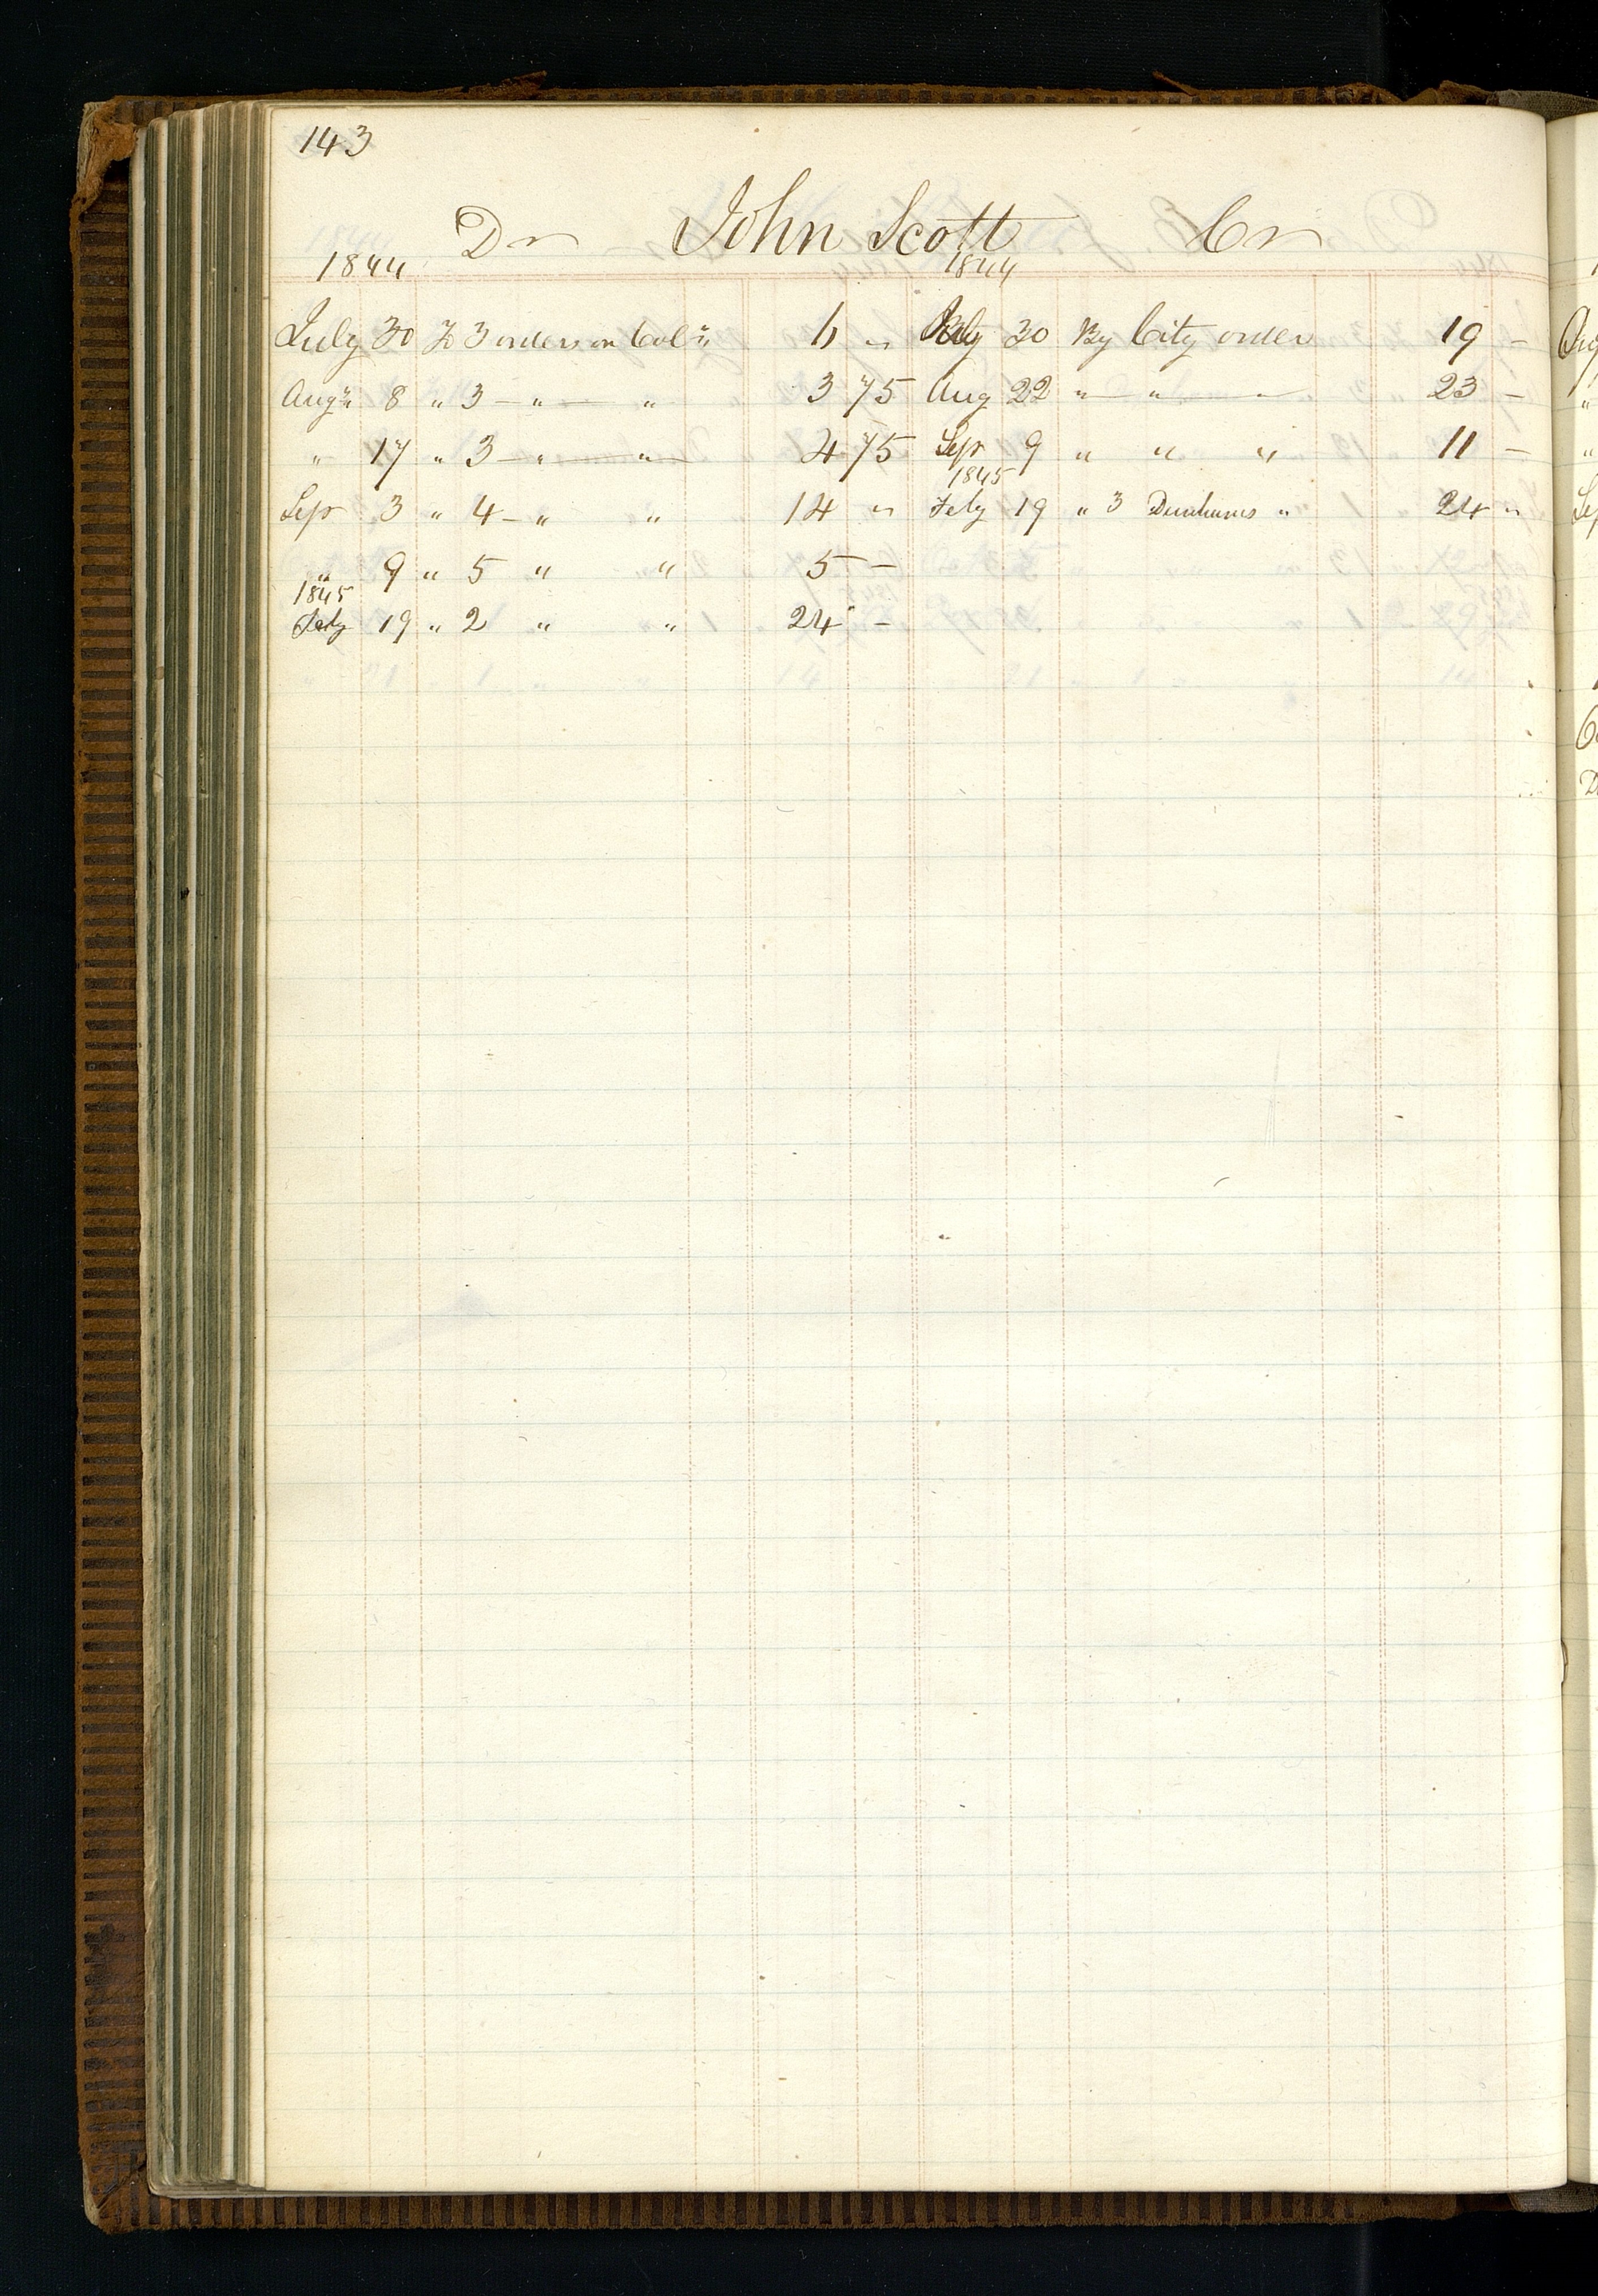 143
Dr John Scott Cr
1844 1844
July 30 To 3 orders on Col" 6 " July 30 By City order 19 -
Aug" 8 " 3 - " " 3 75 Aug 22 " " " 23 -
" 17 " 3 - " " 4 75 Sep 9 " " " 11 -
1845
Sep 3 " 4 - " " 14 " Feby 19 " 3 Dunhams " 24 "
" 9 " 5 " " 5 -
1845
Feby 19 " 2 " " 24 -